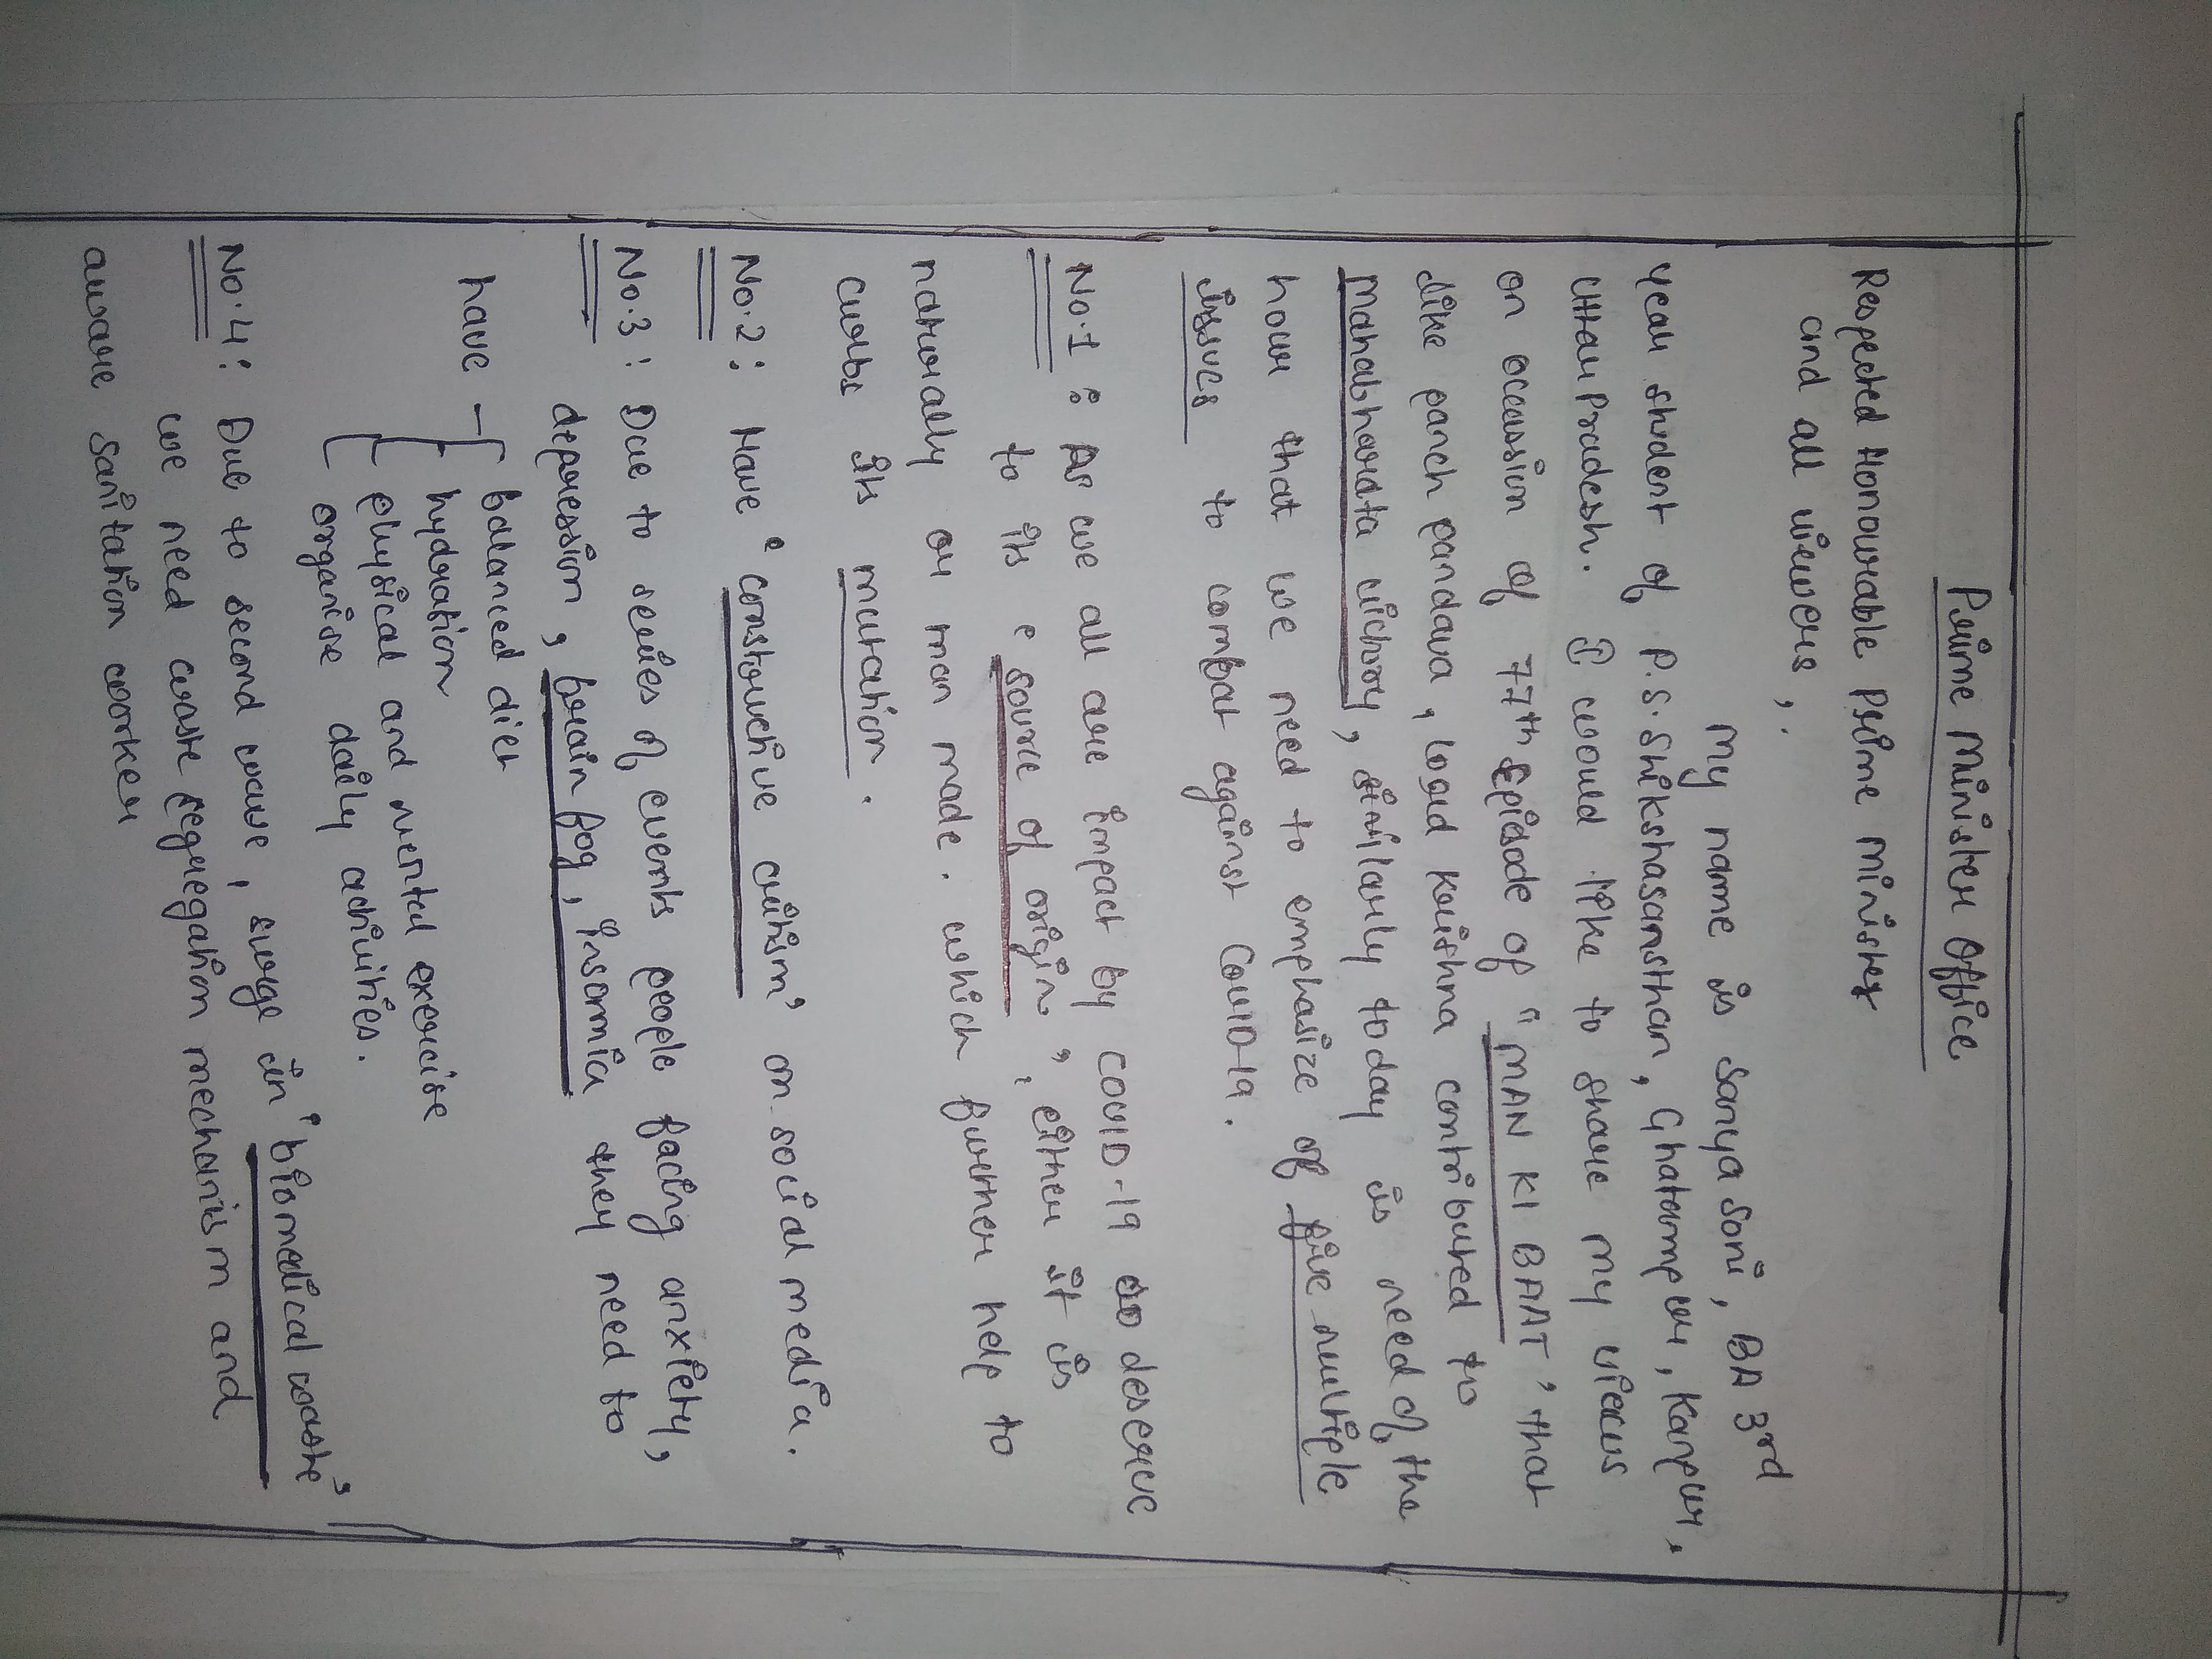 Prime Minister Office
Respected Honourable Prime Minister
and all viewers,
My name is Sanya Soni, BA 3rd
year student of P.S. Shikshasansthan, Ghatampur, Kanpur,
Uttar Pradesh. I would like to share my views
on occassion of 77th Episode of "MAN KI BAAT', that
like panch pandava, Lord Krishna contributed to
Mahabharata victory, similarly today is need of the
hour that we need to emphasize of five multiple
issues to combat against Covid-19.
No.1 : As we all are impact by COVID-19 so deserve
to its 'source of origin', either it is
naturally or man made. which further help to
curbs its mutation.
No.2: Have 'constructive critism' on social media.
No.3: Due to series of events people facing anxiety,
depression, brain fog, insomnia they need to
have - balanced diet
hydration
physical and mental exercise
organise daily activities.
No.4: Due to second wave, surge in 'biomedical waste'
we need waste segregation mechanism and
aware sanitation worker